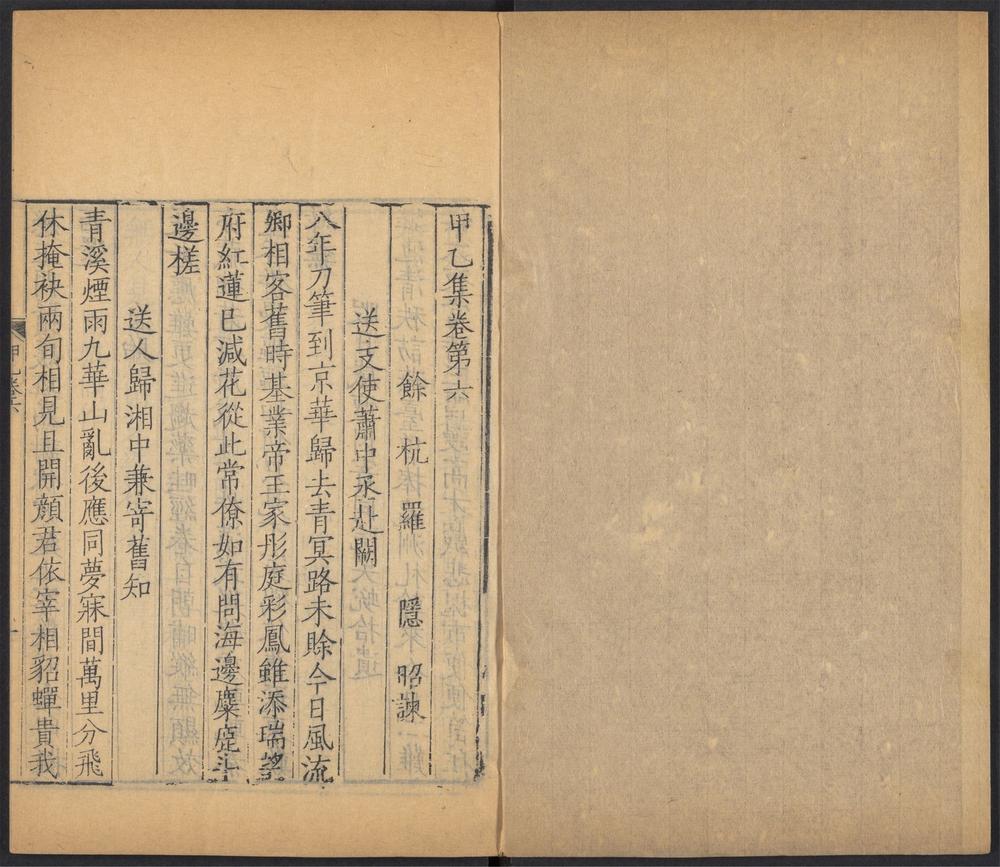 甲乙集卷第六
餘杭羅隱昭諫
送支使蕭中丞赴闕
八年刀筆到京華歸去青冥路未賖今日風流
卿相客舊時基業帝王家彤庭彩鳳雖添瑞望
府紅蓮已減花從此常僚如有問海邊麋鹿斗
邊槎
送人歸湘中兼寄舊知
青溪煙雨九華山亂後應同夢寐間萬里分飛
休掩袂兩旬相見且開顏君依宰相貂蟬貴我
甲乙卷六
一